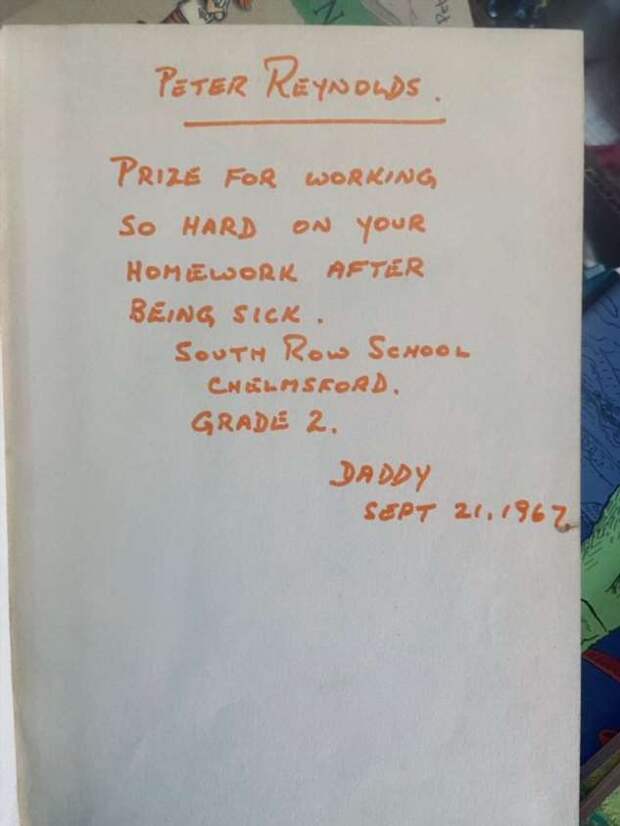 PETER REYNOLDS.
PRIZE FOR WORKING
SO HARD ON YOUR
HOMEWORK AFTER
BEING SICK.
SOUTH ROW SCHOOL
CHELMSFORD.
GRADE 2.
DADDY
SEPT 21.1967